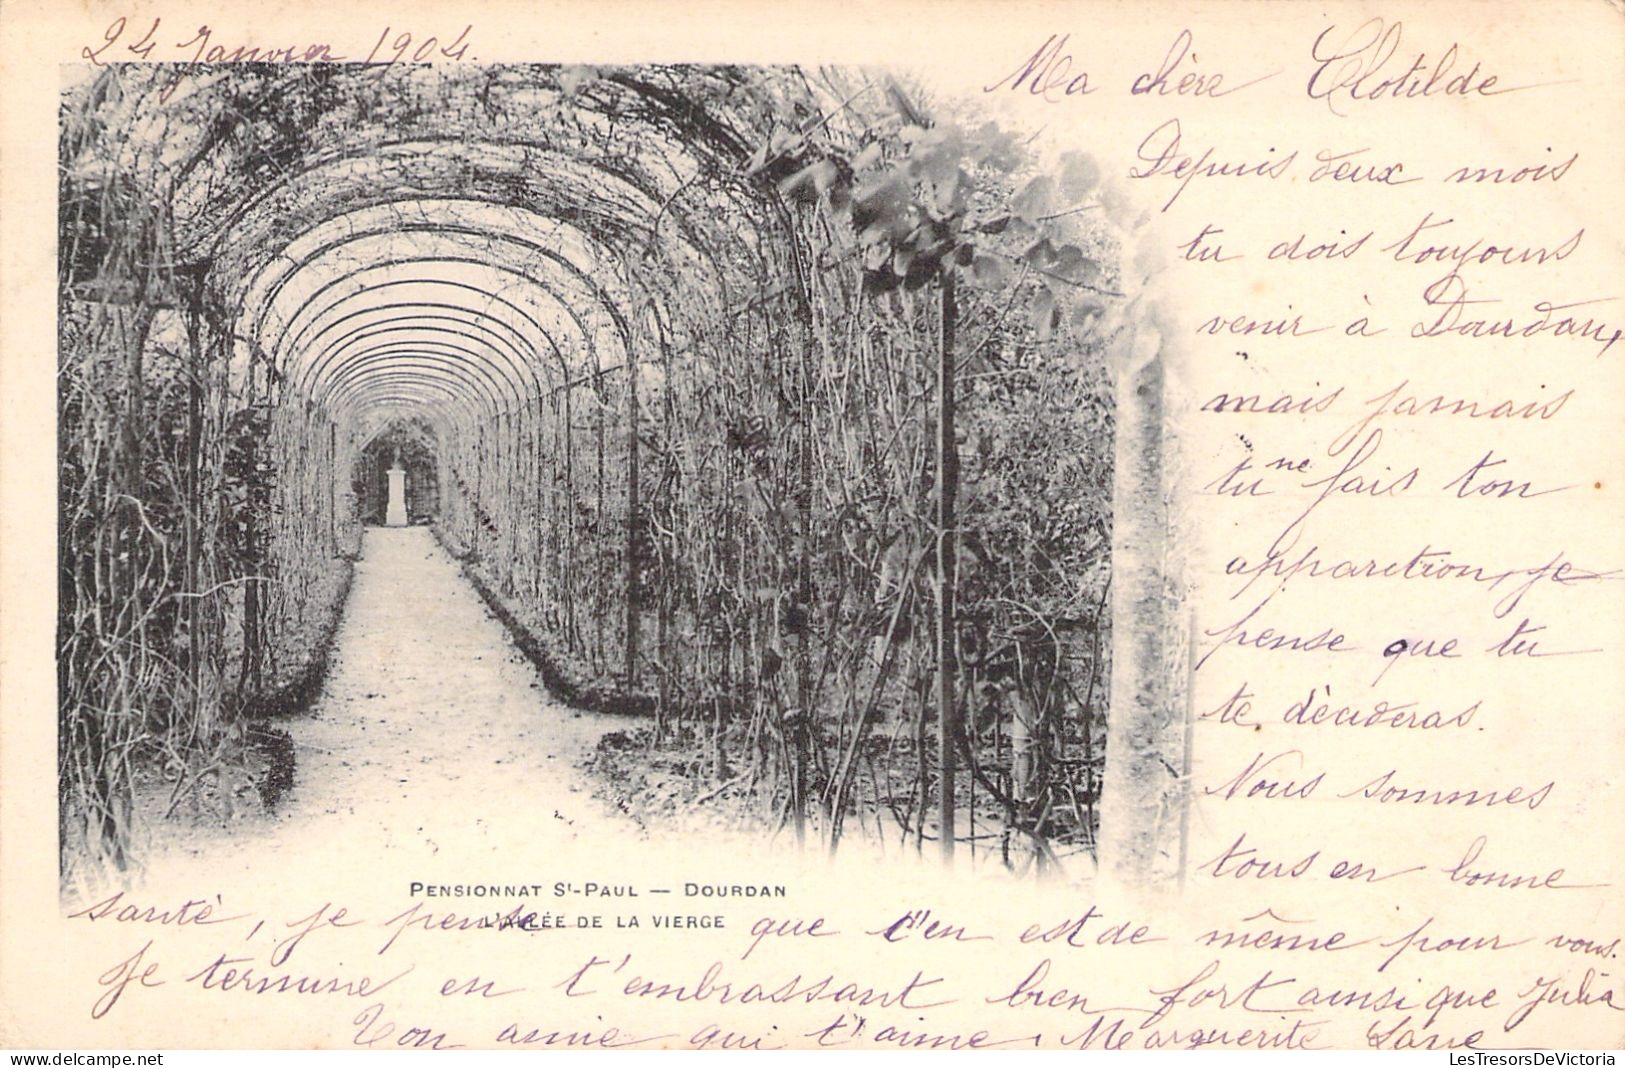 24 Janvier 1904.
Ma chère Clotilde
Depuis deux mois
tu dois toujours
venir à Dourdan,
mais jamais
tu ne fais ton
apparition, je
pense que tu
te dècideras.
Nous sommes
tous en bonne
PENSIONNAT St-PAUL — DOURDAN
L'ALLÉE DE LA VIERGE
santè, je pense que c'en est de même pour vous.
Je termine en t'embrassant bien fort ainsi que Julia
Ton amie qui t'aime. Marguerite
LesTresorsDeVictoria